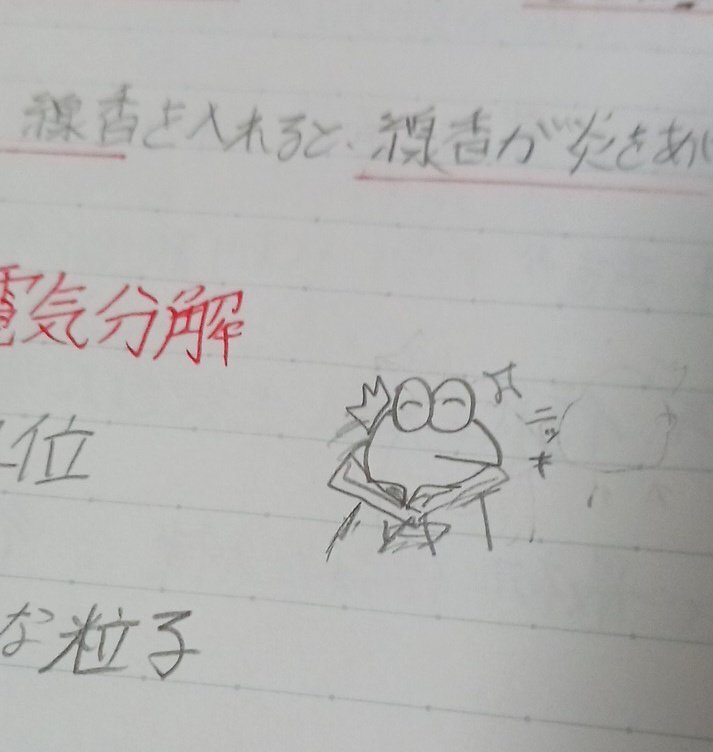 線香を入れると、線香が炎をあ
電気分解
位
ニッ
キ
な粒子